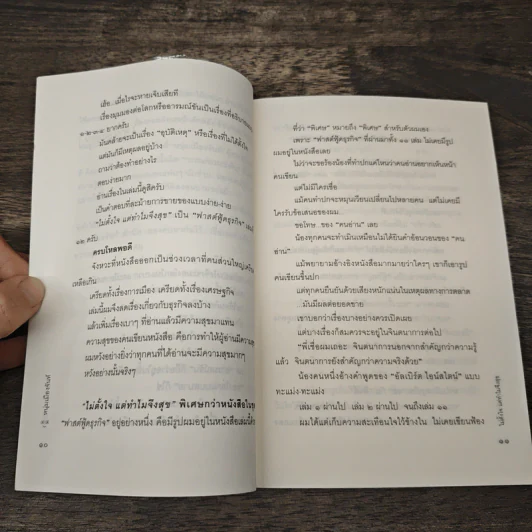 เฮ้อ..เมื่อไรจะหายเจ็บเสียที
เรื่องมุมมองต่อโลกหรืออารมณ์ขันเป็นเรื่องที่อธิบาย
๑-๒-๓-๔ ยากครับ
มันคล้ายจะเป็นเรื่อง "อุบัติเหตุ" หรือเรื่องที่ไม่ได้ตั้งใจ
แต่มันก็มีเหตุผลอยู่บ้าง
ถามว่าต้องทำอย่างไร
ตอบง่ายมาก
อ่านเรื่องในเล่มนี้ดูสิครับ
เป็นคำตอบที่ละม้ายการขายของแบบง่าย-ง่าย
"ไม่ตั้งใจ แต่ทำไมจึงสุข" เป็น "ฟาสต์ฟู้ดธุรกิจ"
๑๒ ครับ
ครบโหลพอดี
จังหวะที่หนังสือออกเป็นช่วงเวลาที่คนส่วนใหญ่
เหลือเกิน
เครียดทั้งเรื่องการเมือง เครียดทั้งเรื่องเศรษฐกิจ
เล่มนี้ผมจึงลดเรื่องเกี่ยวกับธุรกิจลงบ้าง
แล้วเพิ่มเรื่องเบาๆ ที่อ่านแล้วมีความสุขมาแทน
ความสุขของคนเขียนหนังสือ คือการทำให้ผู้อ่านมีความ
ผมหวังอย่างยิ่งว่าทุกคนที่ได้อ่านจะมีความสุขมากๆ
หวังอย่างนั้นจริงๆ
"ไม่ตั้งใจ แต่ทำไมจึงสุข" พิเศษกว่าหนังสือ
"ฟาสต์ฟู้ดธุรกิจ" อยู่อย่างหนึ่ง คือมีรูปผมอยู่ในหนังสือเล่มนี้
หนุ่มเมืองจันท์
๑๐
ที่ว่า "พิเศษ" หมายถึง "พิเศษ" สำหรับตัวผมเอง
เพราะ "ฟาสต์ฟู้ดธุรกิจ" ที่ผ่านมาทั้ง ๑๑ เล่ม ไม่เคยมีรูป
ผมอยู่ในหนังสือเลย
ไม่ว่าจะขอร้องน้องที่ทำปกแค่ไหนว่าคนอ่านอยากเห็นหน้า
คนเขียน
แต่ไม่มีใครเชื่อ
แม้คนทำปกจะหมุนเวียนเปลี่ยนไปหลายคน แต่ไม่เคยมี
ใครรับข้อเสนอของผม
ขอโทษ..ของ "คนอ่าน" เลย
น้องทุกคนจะทำเมินเหมือนไม่ได้ยินคำอ้อนวอนของ "คน
อ่าน"
แม้พยายามอ้างอิงหนังสือมากมายว่าใครๆ เขาก็เอารูป
คนเขียนขึ้นปก
แต่ทุกคนยืนยันด้วยเสียงหนักแน่นในเหตุผลทางการตลาด
..มันมีผลต่อยอดขาย
เขาบอกว่าเรื่องบางอย่างควรเปิดเผย
แต่บางเรื่องก็สมควรจะอยู่ในจินตนาการต่อไป
"พี่เชื่อผมเถอะ จินตนาการนอกจากสำคัญกว่าความรู้
แล้ว จินตนาการยังสำคัญกว่าความจริงด้วย"
น้องคนหนึ่งอ้างคำพูดของ "อัลเบิร์ต ไอน์สไตน์" แบบ
ทะแม่ง-ทะแม่ง
เล่ม ๑ ผ่านไป เล่ม ๒ ผ่านไป จนถึงเล่ม ๑๑
ผมได้แต่เก็บความสะเทือนใจไว้ข้างใน ไม่เคยเขียนฟ้อง
ไม่ตั้งใจ แต่ทำไมจึงสุข
๑๑